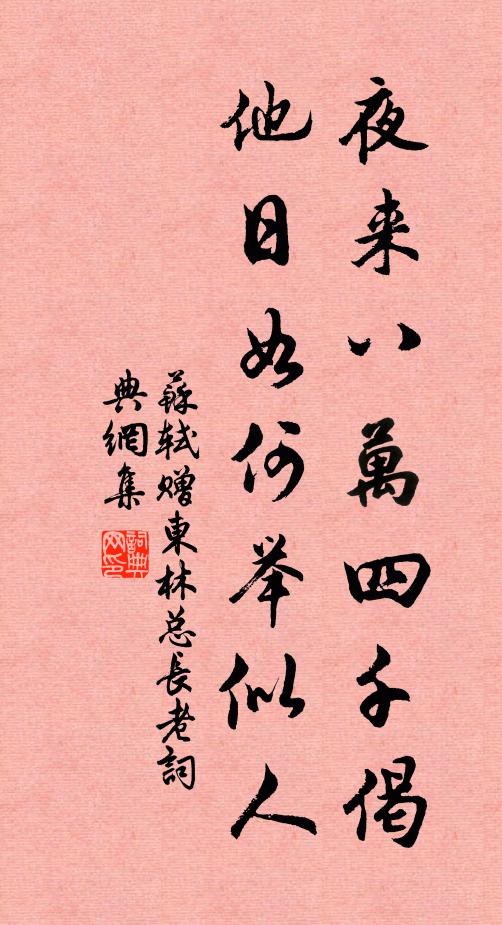 夜来八萬四千偈
他日如何举似人
蘇轼赠東林总長老詞
典網集
詞典
网印